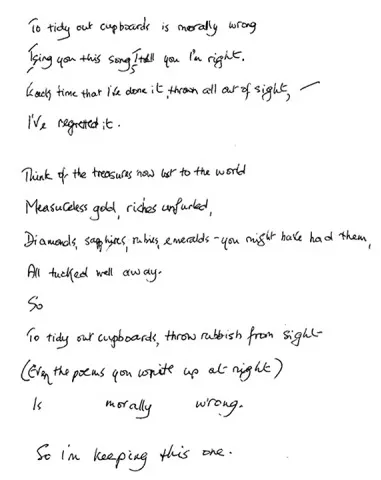 To tidy out cupboards is morally wrong
I sing you this song, I tell you I'm right.
Each time that I've done it, thrown all out of sight,
I've regretted it.
Think of the treasures now lost to the world
Measureless gold, riches unfurled,
Diamonds, sapphires, rubies, emeralds - you might have had them,
All tucked well away.
So
To tidy out cupboards, throw rubbish from sight
(Even the poems you write up at night)
Is morally wrong.
So i'm keeping this one.